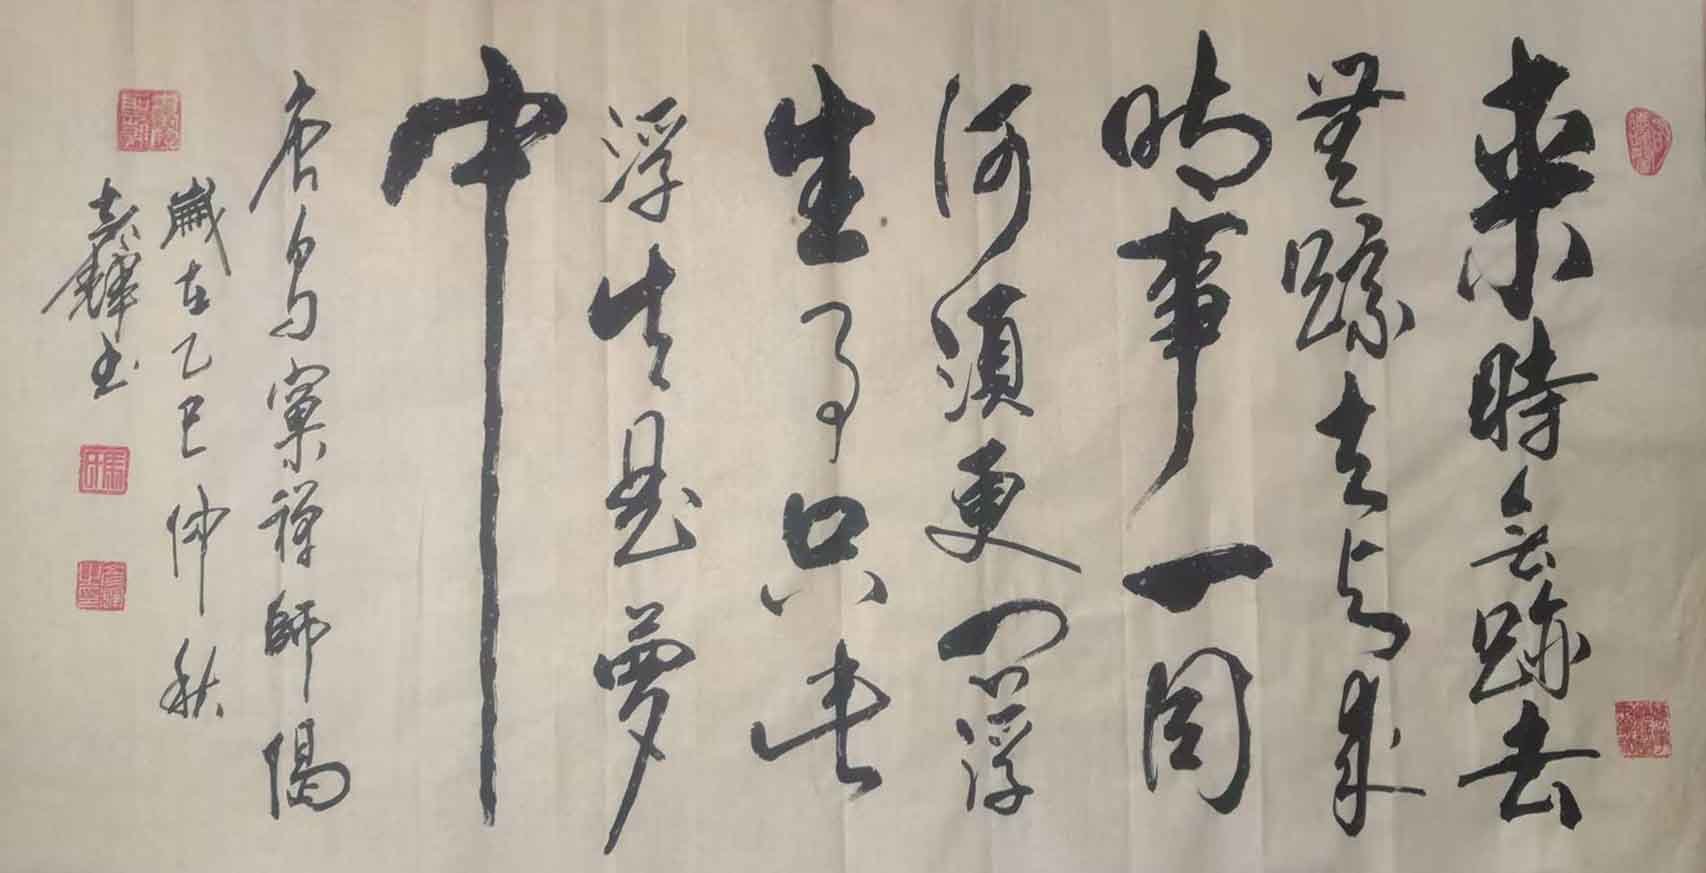 來時無跡去
無蹤去与来
时事一同
何須更问浮
生事只此
浮生是夢
中
唐鳥窠禅師偈
歲在乙巳仲秋
書